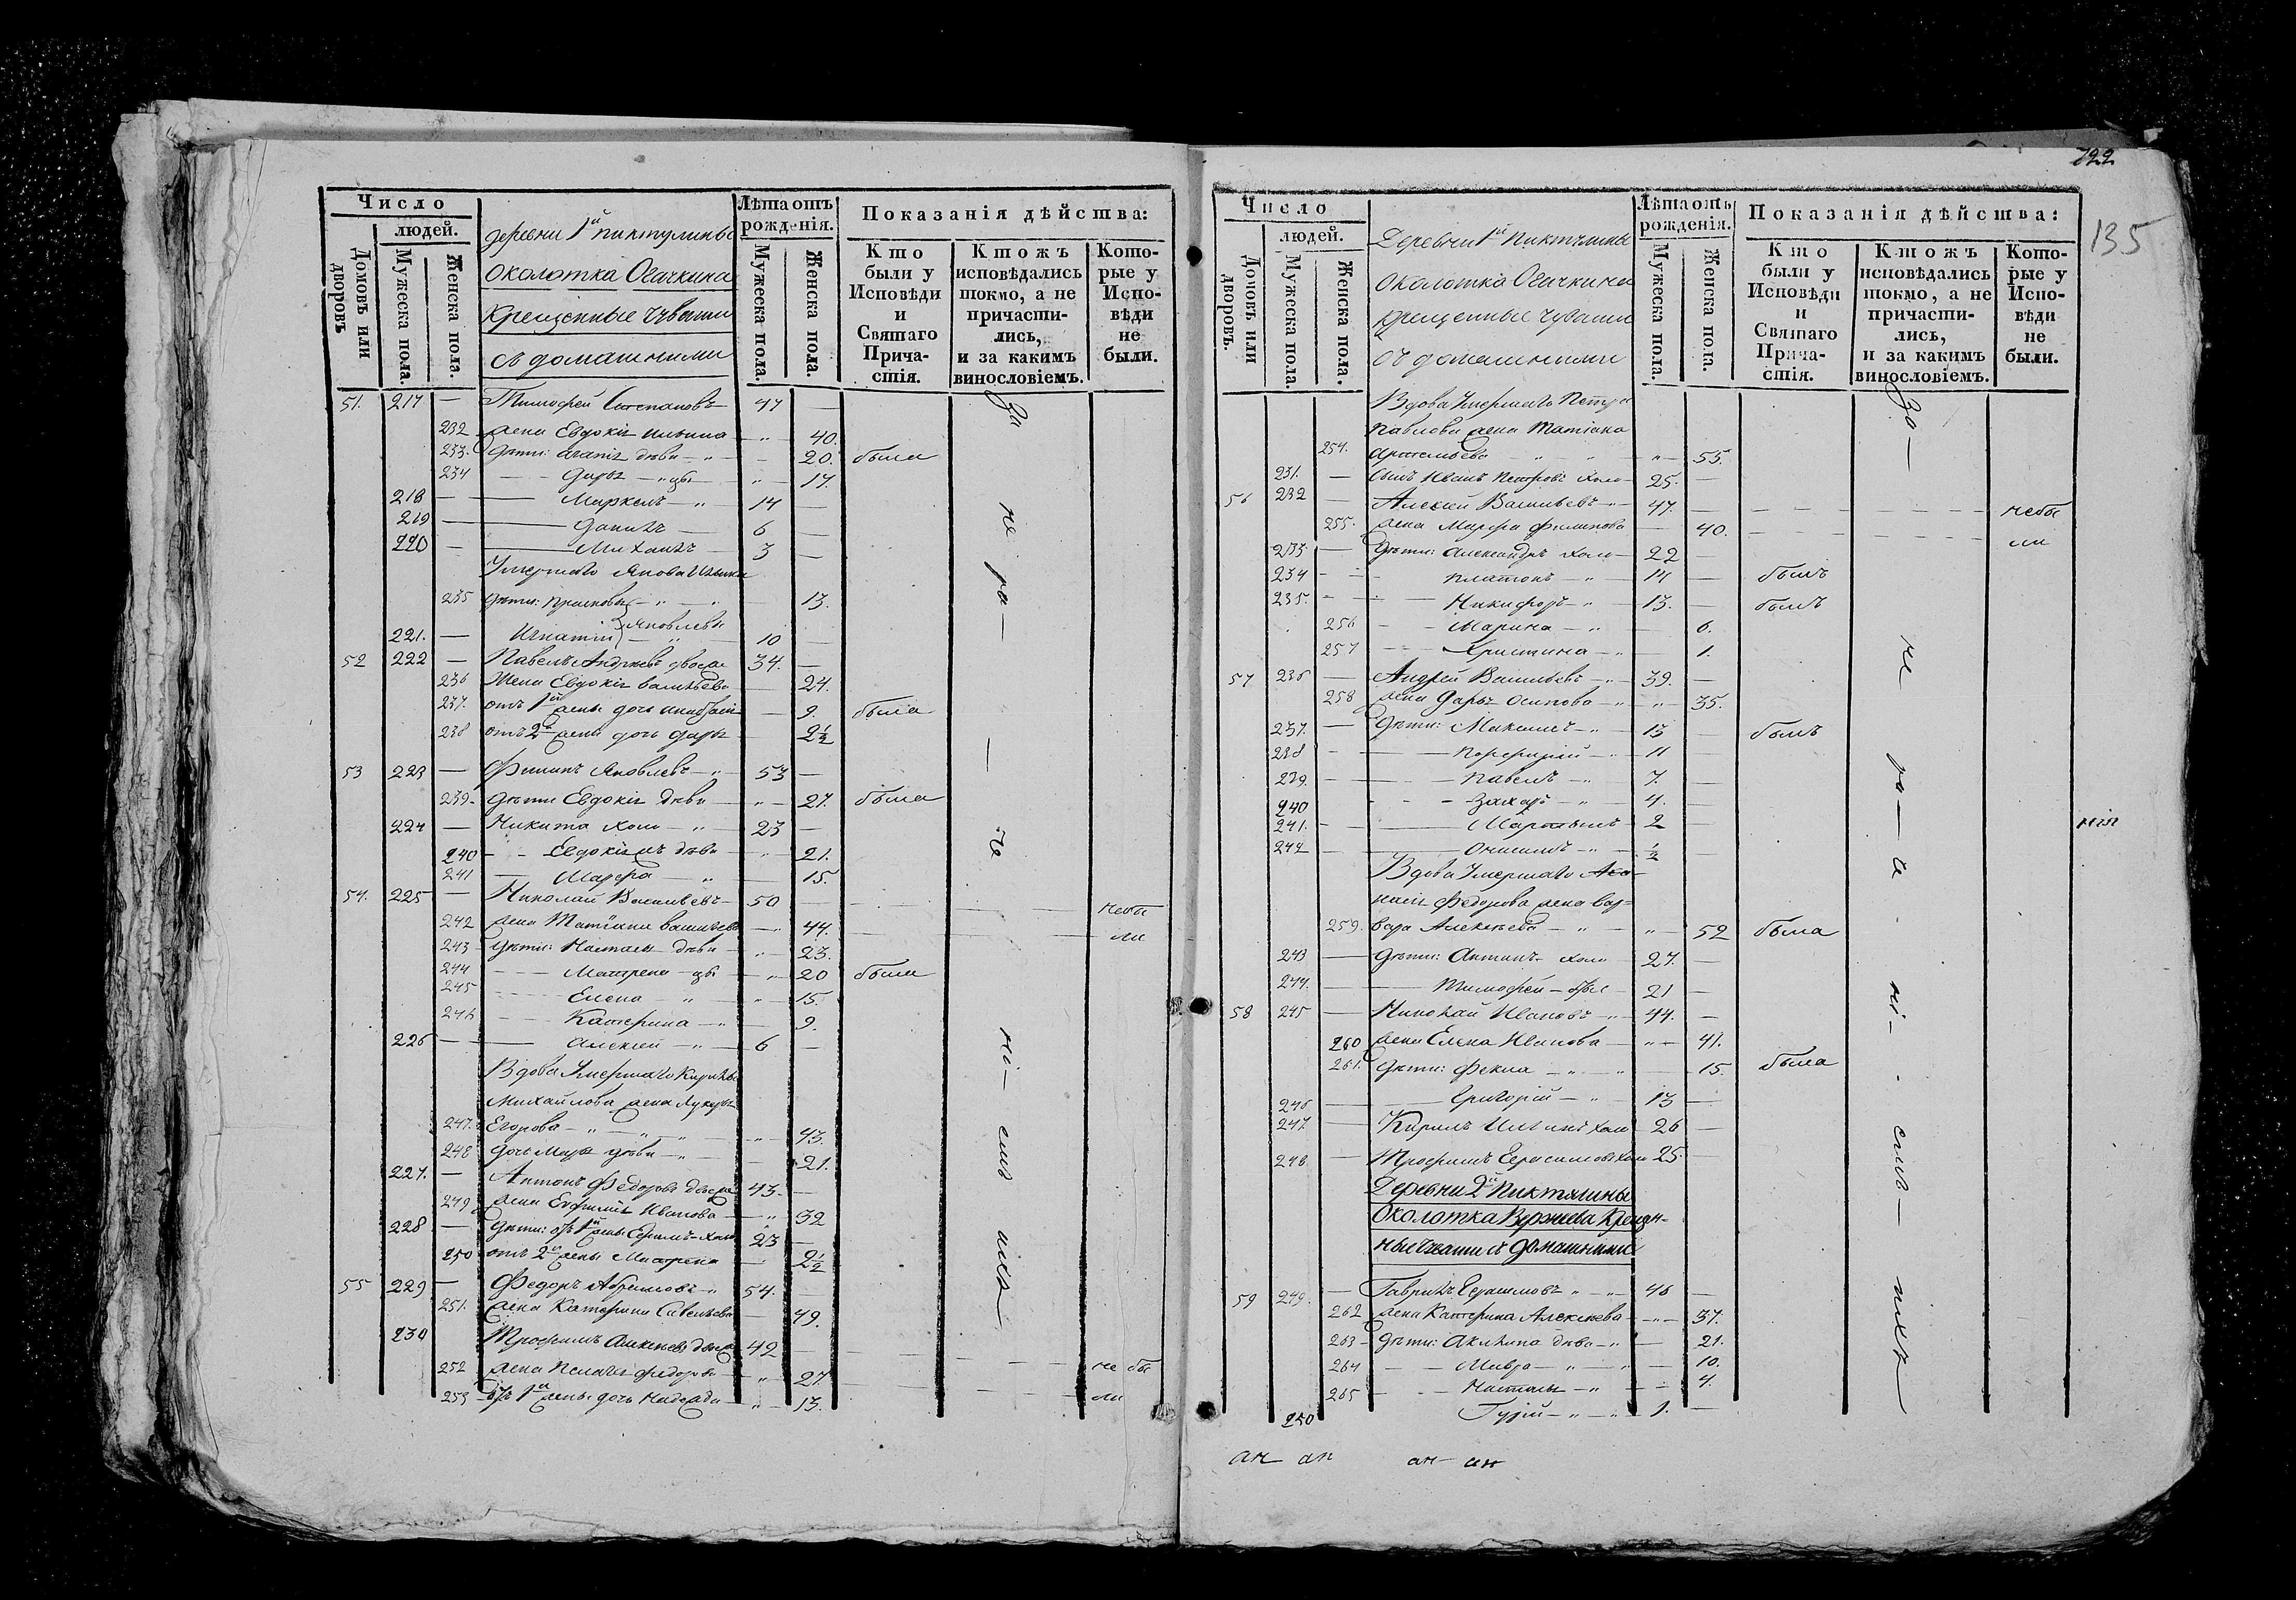 722
135
Число
людей.
Домовъ или дворовъ
Мужеска пола.
Женска пола.
деревни 1й пиктулины
околотка Осачкина
крещенные Чуваши
съ домашними
Лѣта отъ рожденія.
Мужеска пола.
Женска пола.
Показанія дѣйства:
Кто были у Исповѣди и Святаго Причастія.
Ктожъ исповѣдались токмо, а не причастились, и за какимъ винословіемъ.
Которые у Исповѣди не были.
51. 217 — Тимофей Степановъ 47 —
232 жена Евдокія Ильина „ 40.
233. дѣти: дѣвы 20. была
234 Дарья „ 17
218 — Маркелъ „ 14 —
219 — Данилъ 6 —
220 — Михаилъ 3 —
Умершаго Якова
235 дѣти: 13.
Яковлевы
221. — Игнатій 10 —
52 222 — Павелъ Андреевъ 34. —
236 Жена Евдокія васильева 24.
237. отъ 1й жены дочь 9. была
238 отъ 2й жены дочь Дарья 2½
53 223 — Филипъ Яковлевъ 53 —
239. дѣти Евдокія дѣва „ 27. была
224 — Никита холо „ 23 —
240 — дѣва „ 21.
241 — Марфа „ 15.
54. 225 — Николай Васильевъ 50 — небы
242 жена Татіана васильева „ 44. ли
243 дѣти: Настасья дѣва „ 23.
244 Матрена „ 20 была
245 Елена „ 15.
246 Катерина „ 9.
226 — Алексей „ 6 —
Вдова Умершаго Кирилы
Михайлова жена Лукерья
247. Егорова „ 43.
248 дочь Марья дѣва „ 21.
227. — Антонъ Федоровъ 43. —
249 жена Евфимія Иванова „ 32
228 — дѣти: отъ 1й жены 23 —
250 отъ 2й жены Матрена 2½
55 229 — Федоръ Абрамовъ „ 54.
251. жена Катерина Савельева 49.
230 Трофимъ Алексеевъ 42 —
252 жена Пелагея федорова „ 27. не бы
253 отъ 1й жены дочь 13. ли
За не ра—че ні—емъ
Число
людей.
Домовъ или дворовъ.
Мужеска пола.
Женска пола.
Деревни 1й Пиктулины
околотка Осачкина
крещенные Чуваши
съ домашними
Лѣта отъ рожденія.
Мужеска пола.
Женска пола.
Показанія дѣйства:
Кто были у Исповѣди и Святаго Причастія.
Ктожъ исповѣдались токмо, а не причастились, и за какимъ винословіемъ.
Которые у Исповѣди не были.
Вдова Умершаго Петра
Павлова жена Татіана
254. Артемьева „ 55.
231. — Сынъ Иванъ Петровъ холо 25. —
56 232 — Алексей Васильевъ „ 47. — небы
255. жена Марфа филипова 40. ли
233 — дѣти: Александръ холо 22
234 — Платонъ „ 14 — былъ
235. — Никифоръ „ 13. — былъ
256 Марина „ 6.
257 Христина „ 1.
57 236 — Андрей Васильевъ „ 39. —
258 жена Дарья Осипова „ 35.
237. — дѣти: Максимъ „ 13 — былъ
238 — Порфирій „ 11
239. — Павелъ „ 7. —
240 — Захаръ „ 4. —
241. — Мартынъ 2 —
242 — Онисимъ „ ½
Вдова Умершаго Афа-
насія Федорова жена Вар-
259. вара Алексеева „ 52 была
243 — дѣти: Антипъ холо 27. —
244. — Тимофей 21 —
58 245 — Николай Ивановъ 44. —
260 жена Елена Иванова „ 41.
261. дѣти: Фекла „ 15. была
246 — Григорій „ 13 —
247. — Кирилъ холо 26 —
248 — Трофимъ Герасимовъ холо 25.
Деревни 2й Пиктулины
Околотка Крещен-
ные Чуваши съ Домашними
59 249. — Гаврилъ Герасимовъ „ 46 —
262 жена Катерина Алексеева „ 37.
263 дѣти: Акилина дѣва „ 21.
264 Мавра „ 10.
265 Настасья „ 4.
250 Гурій „ 1. —
За— не ра—че ні—емъ